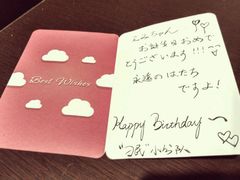 Best Wishes
ちゃん
お誕生日おめで
とうございます!!!
永遠のはたち
ですよ!
Happy Birthday